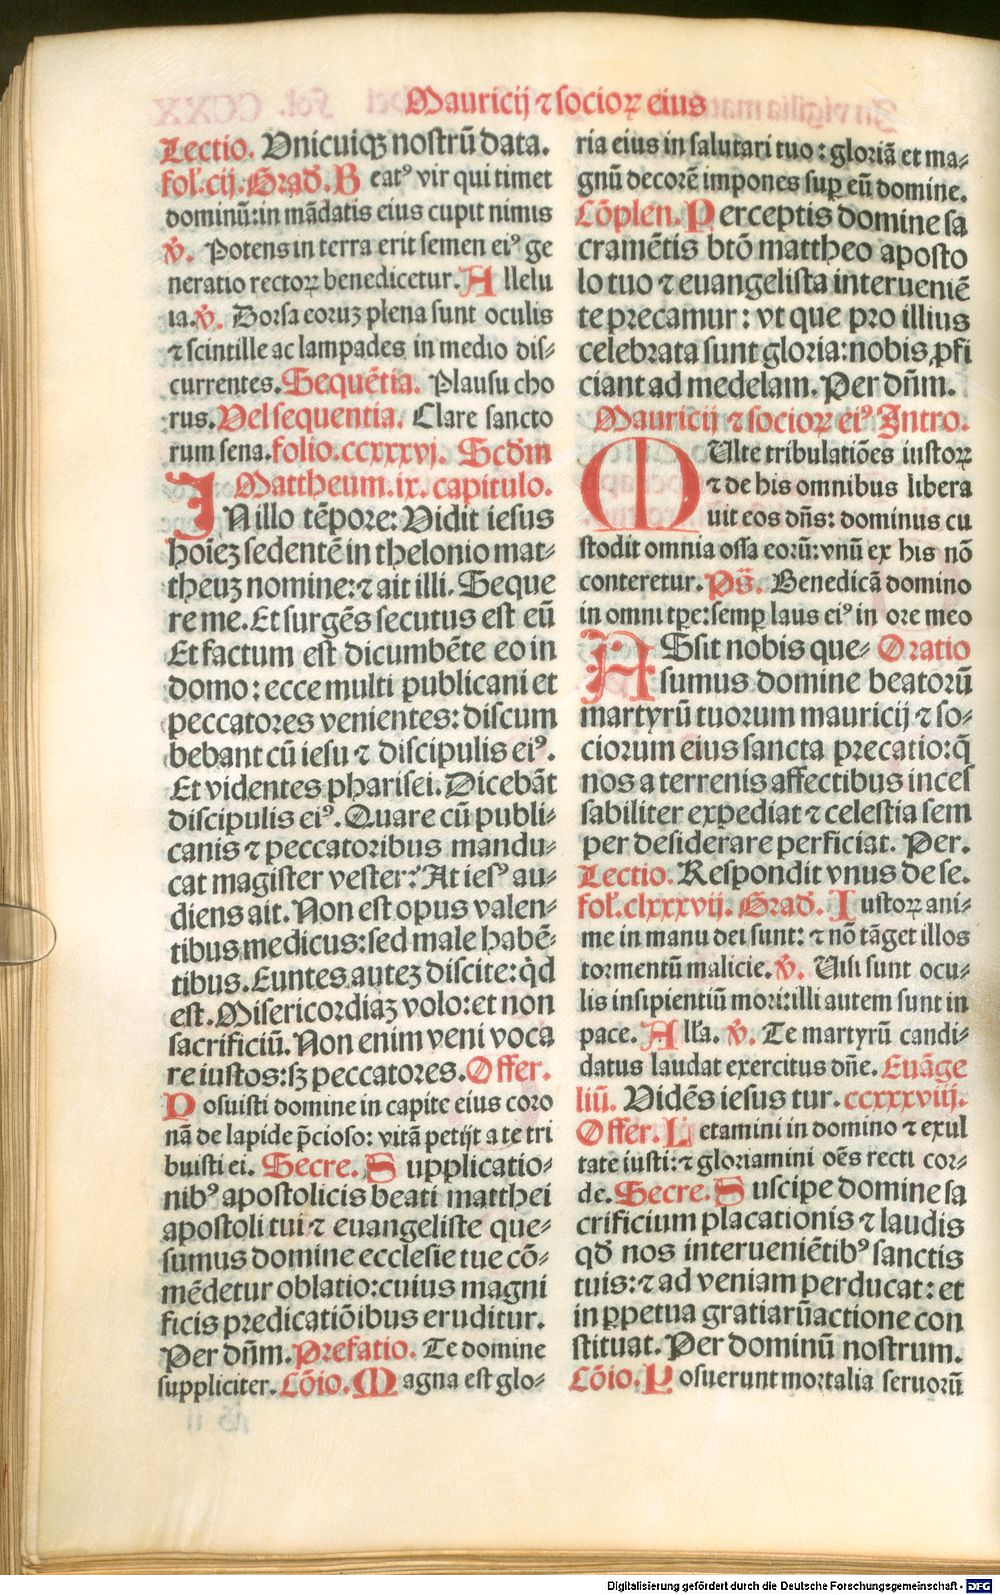 Mauricij ⁊ socioꝝ eius
Lectio. Vnicuiqꝫ nostrū data.
fol̕.cij. Grad̕. B eatꝰ vir qui timet
dominū:in mādatis eius cupit nimis
℣. Potens in terra erit semen eiꝰ ge
neratio rectoꝝ benedicetur. A llelu
ia. ℣. Dorsa eoruꝫ plena sunt oculis
⁊ scintille ac lampades in medio dis⸗
currentes. Sequētia. Plausu cho
rus. Vel sequentia. Clare sancto
rum sena. folio.ccxxxvj. Scd̕m
Mattheum.ix. capitulo.
IN illo tēpore: Vidit iesus
hoīeꝫ sedentē in thelonio mat⸗
theuꝫ nomine: ⁊ ait illi. Seque
re me. Et surgēs secutus est eū
Et factum est dicumbēte eo in
domo: ecce multi publicani et
peccatores venientes: discum
bebant cū iesu ⁊ discipulis eiꝰ.
Et videntes pharisei. Dicebāt
discipulis eiꝰ. Quare cū publi⸗
canis ⁊ peccatoribus mandu⸗
cat magister vester? At iesꝰ au⸗
diens ait. Non est opus valen⸗
tibus medicus: sed male habē⸗
tibus. Euntes auteꝫ discite: qd̕
est. Misericordiaꝫ volo: et non
sacrificiū. Non enim veni voca
re iustos: sꝫ peccatores. Offer.
P osuisti domine in capite eius coro
nā de lapide p̄cioso: vitā petijt a te tri
buisti ei. Secre. S upplicatio⸗
nibꝰ apostolicis beati matthei
apostoli tui ⁊ euangeliste que⸗
sumus domine ecclesie tue cō⸗
mēdetur oblatio: cuius magni
ficis predicatiōibus eruditur.
Per dn̄m. Prefatio. Te domine
suppliciter. Cōio. M agna est glo⸗
ria eius in salutari tuo: gloriā et ma⸗
gnū decorē impones suꝑ eū domine.
Cōplen. P erceptis domine sa
cramētis btō mattheo aposto
lo tuo ⁊ euangelista interueniē
te precamur: vt que pro illius
celebrata sunt gloria: nobis ꝓfi
ciant ad medelam. Per dn̄m.
Mauricij ⁊ socioꝝ eiꝰ Intro.
MUlte tribulatiōes iustoꝝ
⁊ de his omnibus libera
uit eos dn̄s: dominus cu
stodit omnia ossa eorū: vnū ex his nō
conteretur. Ps̄. Benedicā domino
in omni tꝑe: semꝑ laus eiꝰ in ore meo
ASsit nobis que⸗ Oratio
sumus domine beatorū
martyrū tuorum mauricij ⁊ so⸗
ciorum eius sancta precatio: q̄
nos a terrenis affectibus inces
sabiliter expediat ⁊ celestia sem
per desiderare perficiat. Per.
Lectio. Respondit vnus de se.
fol̕.clxxxvij. Grad̕. I ustoꝝ ani⸗
me in manu dei sunt: ⁊ nō tāget illos
tormentū malicie. ℣. Uisi sunt ocu⸗
lis insipientiū mori: illi autem sunt in
pace. A lla. ℣. Te martyrū candi⸗
datus laudat exercitus dn̄e. Euāge
liū. Vidēs iesus tur. ccxxxviij.
Offer. L etamini in domino ⁊ exul
tate iusti: ⁊ gloriamini oēs recti cor⸗
de. Secre. S uscipe domine sa
crificium placationis ⁊ laudis
qd̕ nos interueniētibꝰ sanctis
tuis: ⁊ ad veniam perducat: et
in ꝑpetua gratiarū actione con
stituat. Per dominū nostrum.
Cōio. P osuerunt mortalia seruorū
Digitalisierung gefördert durch die Deutsche Forschungsgemeinschaft - DFG